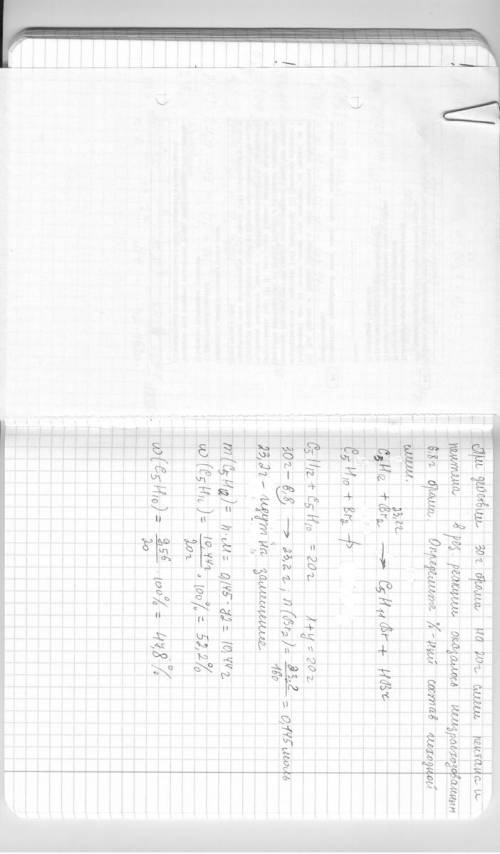 При действии 30г брома на 20г смеси пентана и
пентена в рез. реакции оказалось неизрасходованным
6.8г брома. Определите %-ный состав исходной
смеси.
23,2г
C5H12 + Br2 → C5H11Br + HBr
C5H10 + Br2 →
C5H12 + C5H10 = 20г x+y=20г
30г - 6,8 → 23,2г; n(Br2) = 23,2/160 = 0,145моль
23,2г - идут на замещение
m(C5H12) = n·M = 0,145·72 = 10,44г
w(C5H12) = 10,44г/20г · 100% = 52,2%
w(C5H10) = 9,56/20 · 100% = 47,8%